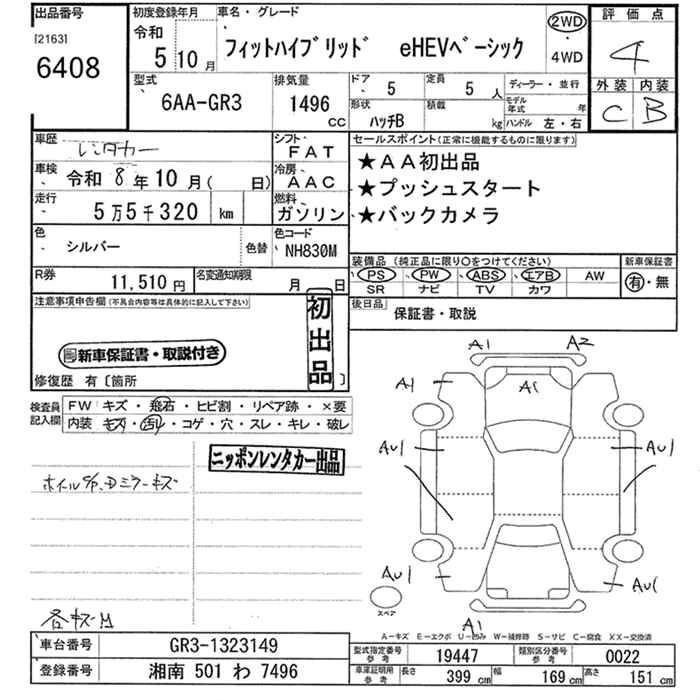 出品番号 初度登録年月 車名・グレード 評価点
[2163] 令和
6408 5 10月 フィットハイブリッド eHEVベーシック 2WD・4WD 4
型式 排気量 ドア 定員 ディーラー・並行 外装 内装
6AA-GR3 1496 CC 5 5人 C B
形状 積載 モデル年式 年
ハッチB kg ハンドル 左・右
車歴 レンタカー シフト FAT セールスポイント(正常に機能するものに限ります)
車検 令和 8年10月( 日) 冷房 AAC ★AA初出品
走行 5万5千320 km 燃料 ガソリン ★プッシュスタート
★バックカメラ
色 シルバー 色替 色コード NH830M
装備品 (純正品に限り○をつけてください) 新車保証書
R券 11,510円 名変通知期限 月 日 PS PW ABS エアB AW 有・無
SR ナビ TV カワ
注意事項申告欄(不具合内容等は具体的に記入して下さい) 初出品 後日品 保証書・取説
新車保証書・取説付き
修復歴 有〔箇所 〕
検査員記入欄 FW キズ・飛石・ヒビ割・リペア跡・×要
内装 キズ・汚レ・コゲ・穴・スレ・キレ・破レ
ニッポンレンタカー出品
ミラーキズ
A1 A2
A1 A1
AU1 AU1
AU1 AU1
スペア
A1
A−キズ E−エクボ U−凹み W−補修跡 S−サビ C−腐食 XX−交換済
車台番号 GR3-1323149 型式指定番号 参考 19447 類別区分番号 参考 0022
登録番号 湘南 501 わ 7496 車庫証明用 参考 長さ 399 cm 幅 169 cm 高さ 151 cm